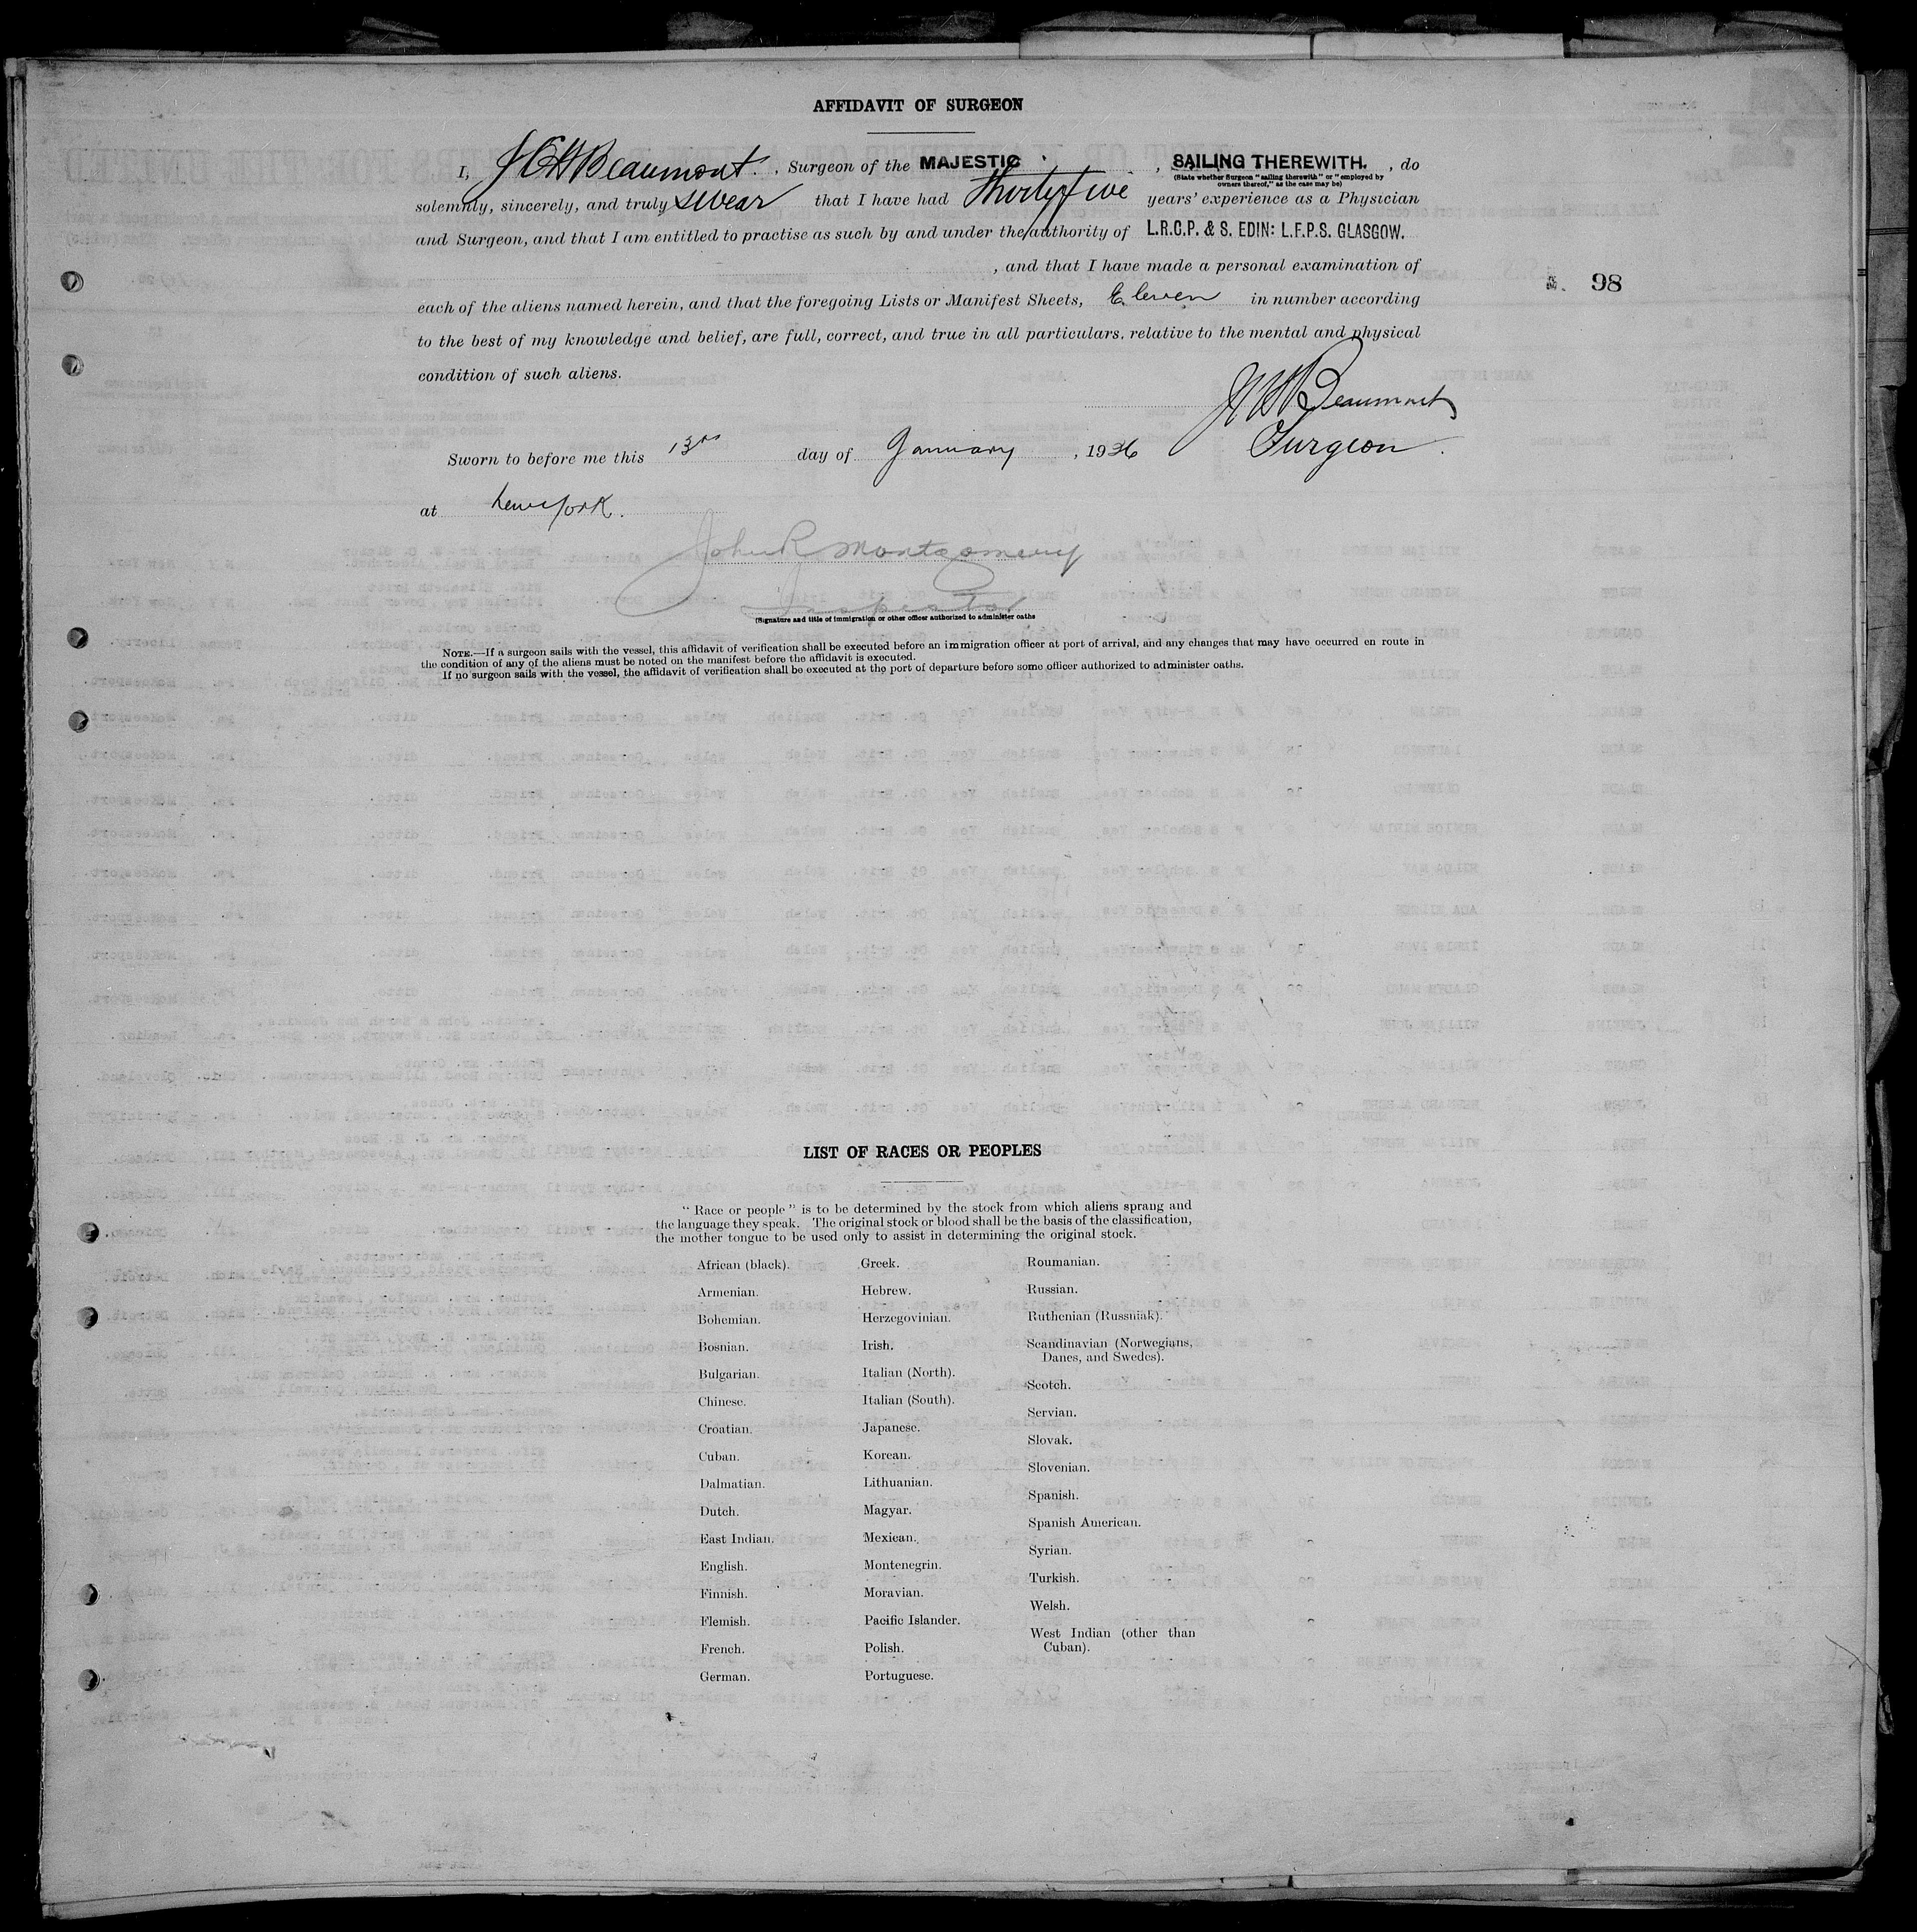 AFFIDAVIT OF SURGEON
I, J C H Beaumont, Surgeon of the MAJESTIC, SAILING THEREWITH., do
(State whether Surgeon "sailing therewith" or "employed by
owners thereof," as the case may be)
solemnly, sincerely, and truly swear that I have had Thirty five years' experience as a Physician
and Surgeon, and that I am entitled to practise as such by and under the authority of L.R.C.P. & S. EDIN: L.F.P.S. GLASGOW.
, and that I have made a personal examination of
98
each of the aliens named herein, and that the foregoing Lists or Manifest Sheets, Eleven in number according
to the best of my knowledge and belief, are full, correct, and true in all particulars, relative to the mental and physical
condition of such aliens.
Beaumont
Surgeon
Sworn to before me this 13 day of January, 19
at New York.
John R Montgomery
Inspector
(Signature and title of immigration or other officer authorized to administer oaths
NOTE.—If a surgeon sails with the vessel, this affidavit of verification shall be executed before an immigration officer at port of arrival, and any changes that may have occurred en route in
the condition of any of the aliens must be noted on the manifest before the affidavit is executed.
If no surgeon sails with the vessel, the affidavit of verification shall be executed at the port of departure before some officer authorized to administer oaths.
LIST OF RACES OR PEOPLES
"Race or people" is to be determined by the stock from which aliens sprang and
the language they speak. The original stock or blood shall be the basis of the classification,
the mother tongue to be used only to assist in determining the original stock.
African (black).
Armenian.
Bohemian.
Bosnian.
Bulgarian.
Chinese.
Croatian.
Cuban.
Dalmatian.
Dutch.
East Indian.
English.
Finnish.
Flemish.
French.
German.
Greek.
Hebrew.
Herzegovinian.
Irish.
Italian (North).
Italian (South).
Japanese.
Korean.
Lithuanian.
Magyar.
Mexican.
Montenegrin.
Moravian.
Pacific Islander.
Polish.
Portuguese.
Roumanian.
Russian.
Ruthenian (Russniak).
Scandinavian (Norwegians,
Danes, and Swedes).
Scotch.
Servian.
Slovak.
Slovenian.
Spanish.
Spanish American.
Syrian.
Turkish.
Welsh.
West Indian (other than
Cuban).